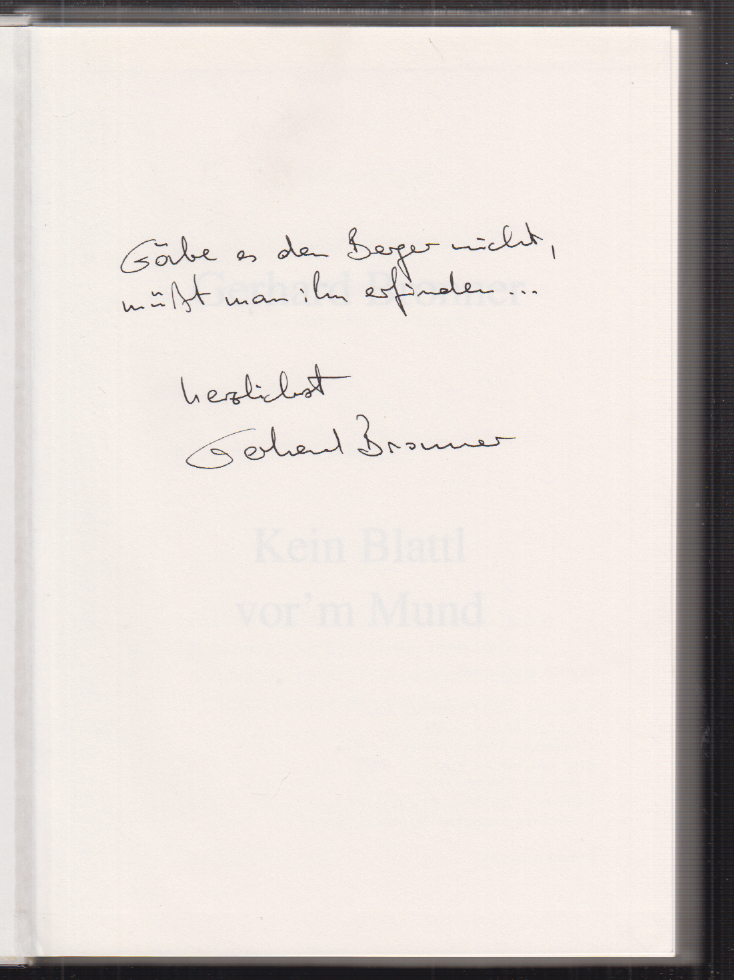 Gäbe es den Berger nicht,
müßt man ihn erfinden...
herzlichst
Gerhard Bronner
Gerhard Bronner
Kein Blattl
vor'm Mund